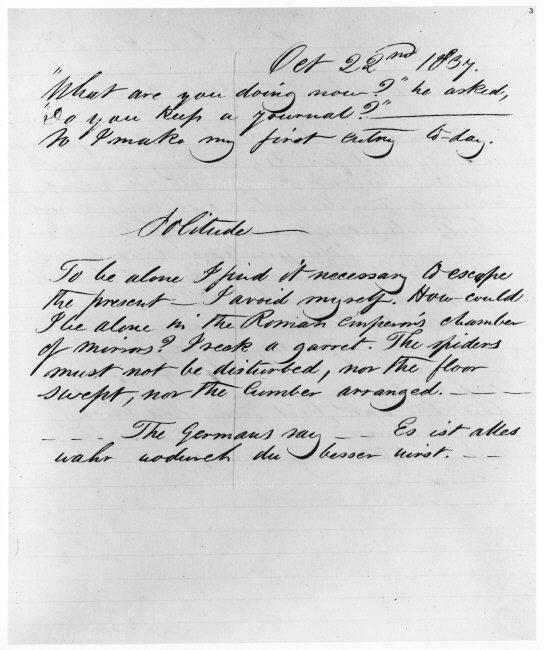 3
Oct 22nd 1837.
"What are you doing now?" he asked,
"Do you keep a journal?"
So I make my first entry to-day.
Solitude
To be alone I find it necessary to escape
the present — I avoid myself. How could
I be alone in the Roman emperor's chamber
of mirrors? I seek a garret. The spiders
must not be disturbed, nor the floor
swept, nor the lumber arranged. — —
— — — The Germans say — — Es ist alles
wahr wodurch du besser wirst. — —
Art Resource
Art Resource
Art Resource